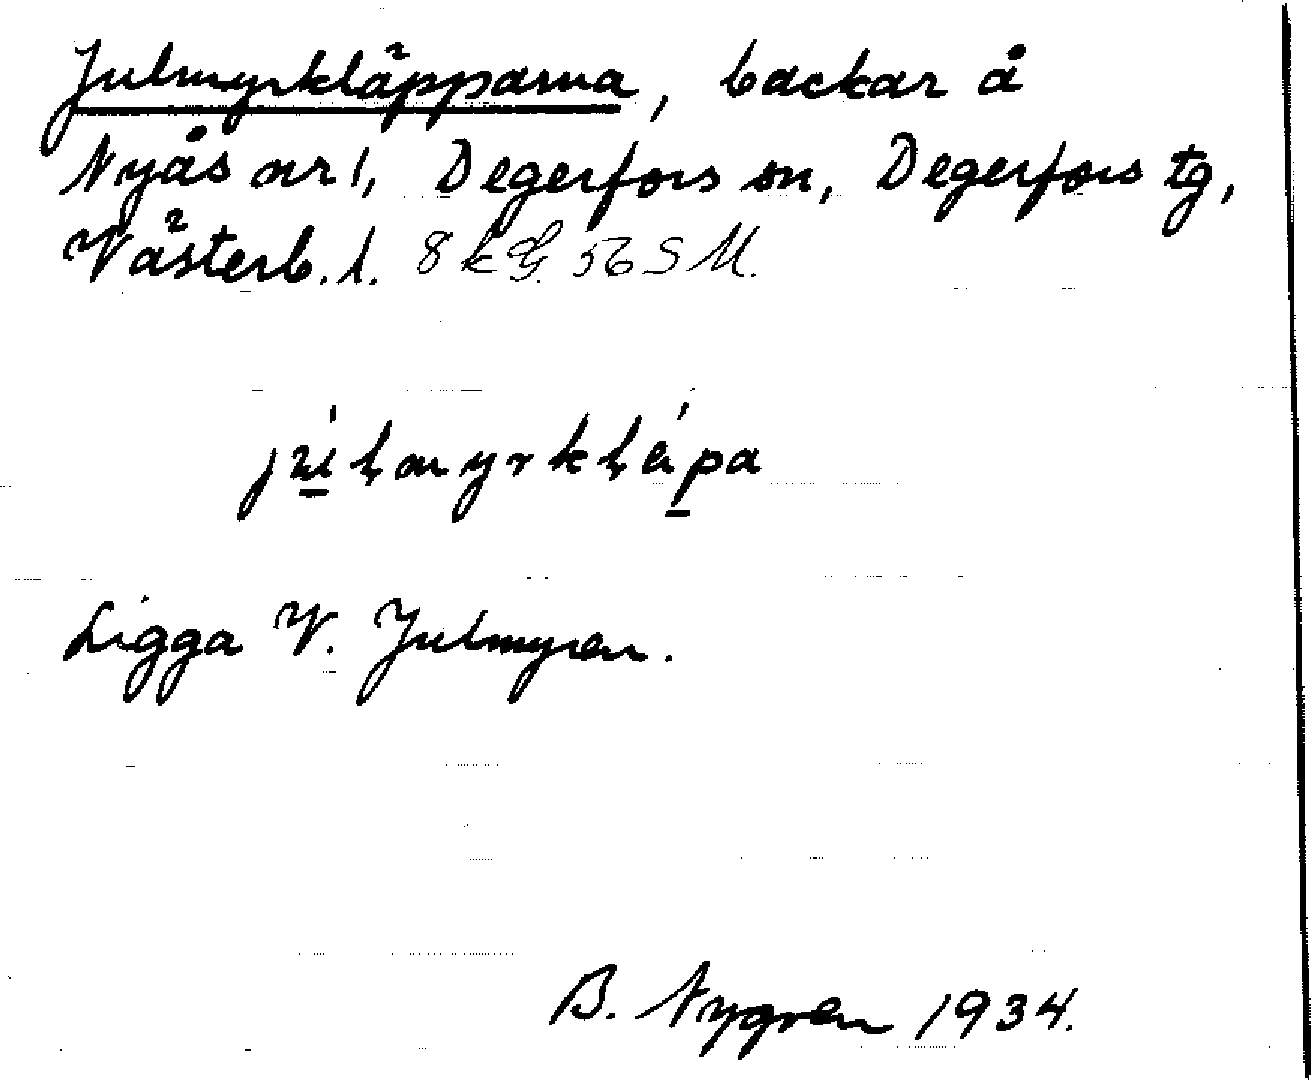 Julmyrkläpparna, backar å
Nyås nr 1, Degerfors sn, Degerfors tg,
Västerb. l. 8 k G. 56 S M.
Ligga V. Julmyren.
B. Nygren 1934.